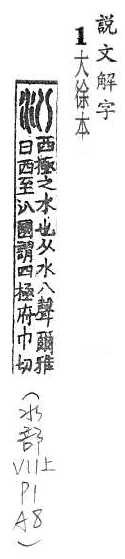 説文解字
1大徐本
汃西極之水也从水八聲爾雅
曰西至汃國謂四極府巾切
(水部
VII上
P1
A8)